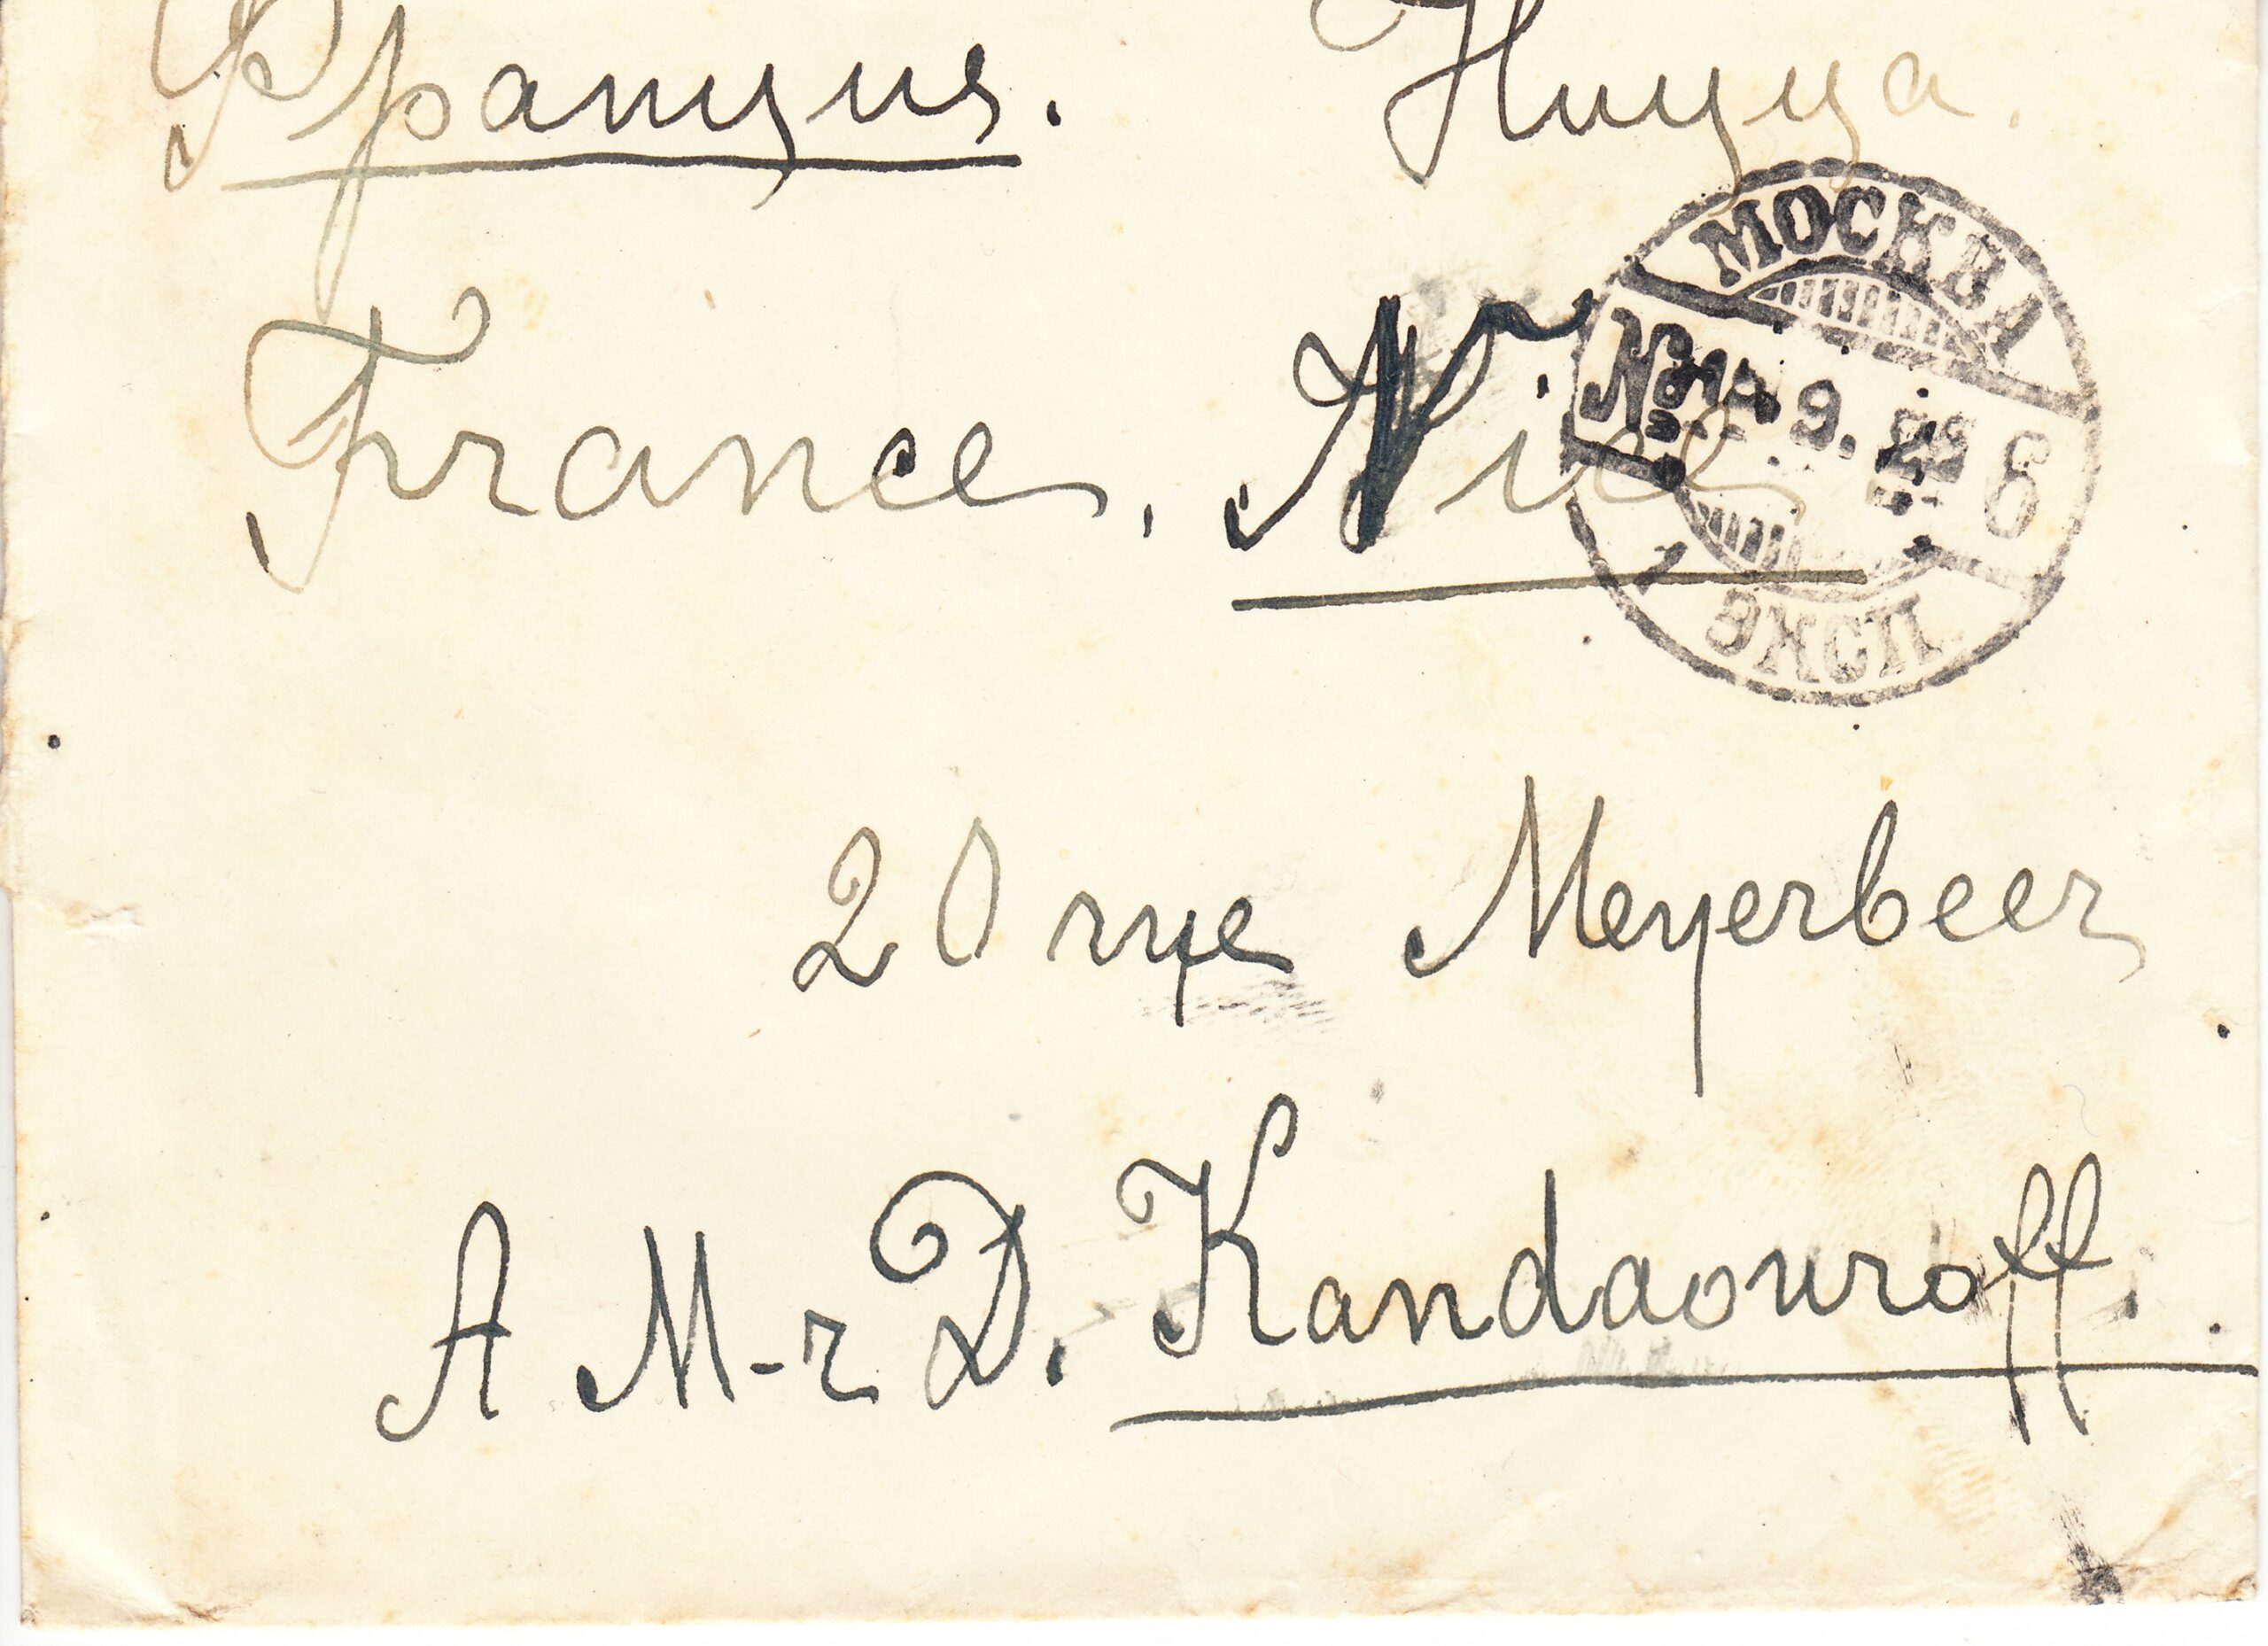 Франция. Ницца.
France, Nice
МОСКВА
9.
6
1
ЭКСП.
20 rue Meyerbeer
A M-r D. Kandaouroff.